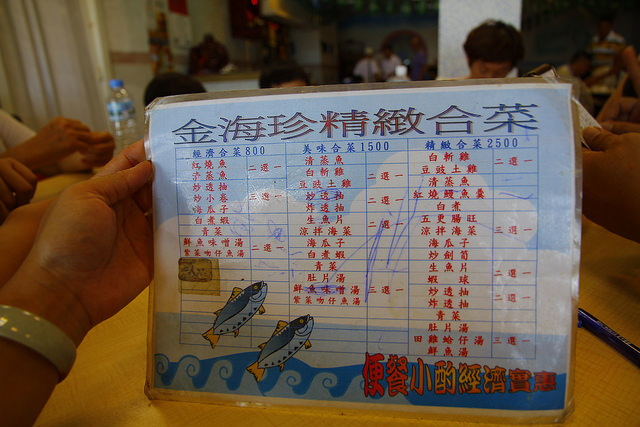 金海珍精緻合菜
經濟合菜800
紅燒魚
清蒸魚
二選一
炒透抽
炒小卷
海瓜子
白煮蝦
三選一
青菜
鮮魚味噌湯
紫菜吻仔魚湯
二選一
美味合菜1500
清蒸魚
白斬雞
豆豉土雞
二選一
炒透抽
炸透抽
二選一
生魚片
涼拌海菜
二選一
海瓜子
白煮蝦
青菜
肚片湯
鮮魚味噌湯
紫菜吻仔魚湯
三選一
精緻合菜2500
白斬雞
豆豉土雞
二選一
清蒸魚
紅燒鰻魚羹
白煮
五更腸旺
涼拌海菜
海瓜子
三選一
炒劍筍
生魚片
蝦球
二選一
炒透抽
炸透抽
二選一
青菜
肚片湯
田雞蛤仔湯
鮮魚湯
三選一
便餐小酌經濟實惠